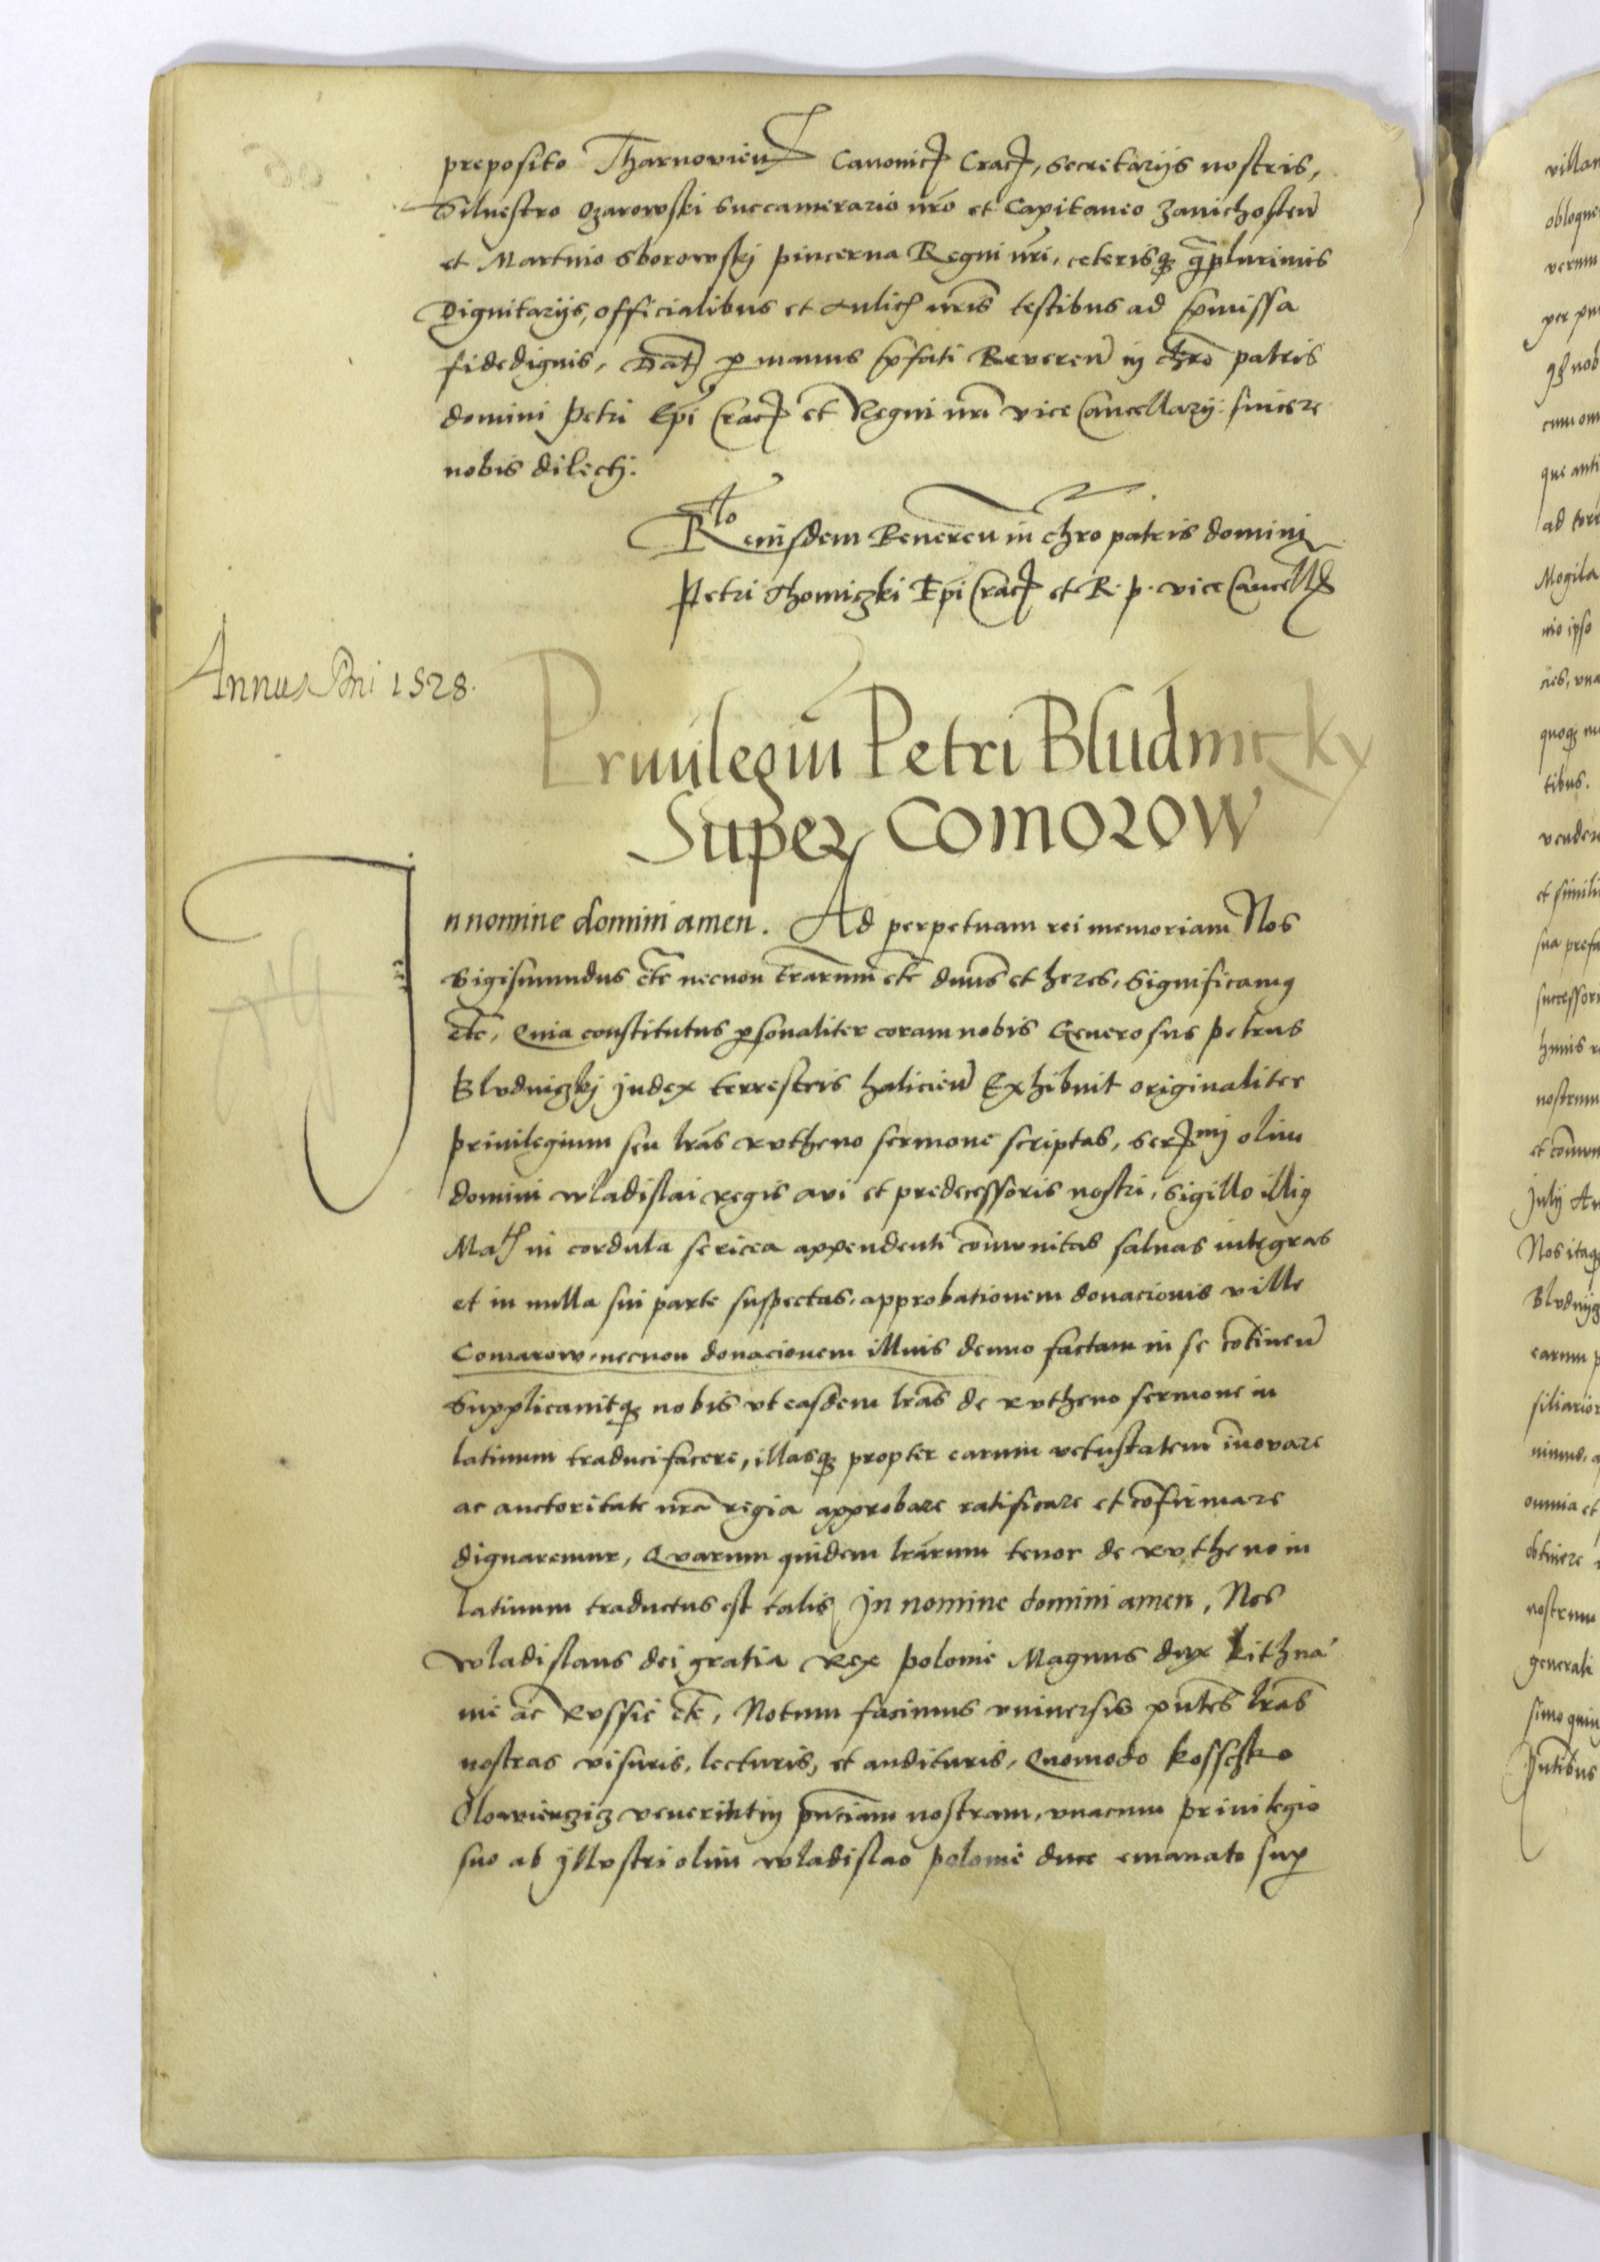 preposito Tharnovien Canonic Crac, secretarijs nostris,
Siluestro Ozarowski succamerario nro et Capitaneo Zanichosten
et Martino Sborowskj pincerna Regni nri, ceterisq qplurimis
Dignitarijs, officialibus et Aulic nris testibus ad pmissa
fidedignis, Dat p manus pfati Reveren in chro patris
domini Petri Epi Crac et Regni nri vice Cancellarij sincere
nobis dilecti.
Rlo eiusdem Reueren in chro patris domini
Petri Thomiczki Epi Crac et R. p. vice Cancell
Annus Dni 1528.
Priuilegiu Petri Bludniczky
Super Comorow
In nomine domini amen. Ad perpetuam rei memoriam Nos
Sigismundus etc necnon trarum etc dnus et heres, Significamq
etc, Quia constitutus psonaliter coram nobis Generosus Petrus
Bludniczkj Judex terrestris halicien Exhibuit originaliter
priuilegium seu lras rutheno sermone scriptas, Ser olim
domini wladislai regis avi et predecessoris nostri, sigillo illiq
Mat in cordula sericea appendenti comunitas saluas integras
et in nulla sui parte suspectas, approbationem donacionis ville
Comarow, necnon donacionem illius denuo factam in se cotinen
Supplicauitq nobis ut easdem lras de rutheno sermone in
latinum traduci facere, illasq propter earum vetustatem inovare
ac auctoritate nra regia approbare ratificare et cofirmare
dignaremur, Quarum quidem lrarum tenor de rutheno in
latinum traductus est talis In nomine domini amen, Nos
wladislaus dei gratia Rex polonie Magnus dux Lithua
nie ac Russie etc, Notum facimus vniuersis pntes lras
nostras visuris, lecturis, et audituris, Quomodo kossczko
Olowienczicz venerint in pntiam nostram, vnacum priuilegio
suo ab Jllustri olim wladislao polonie duce emanato sup